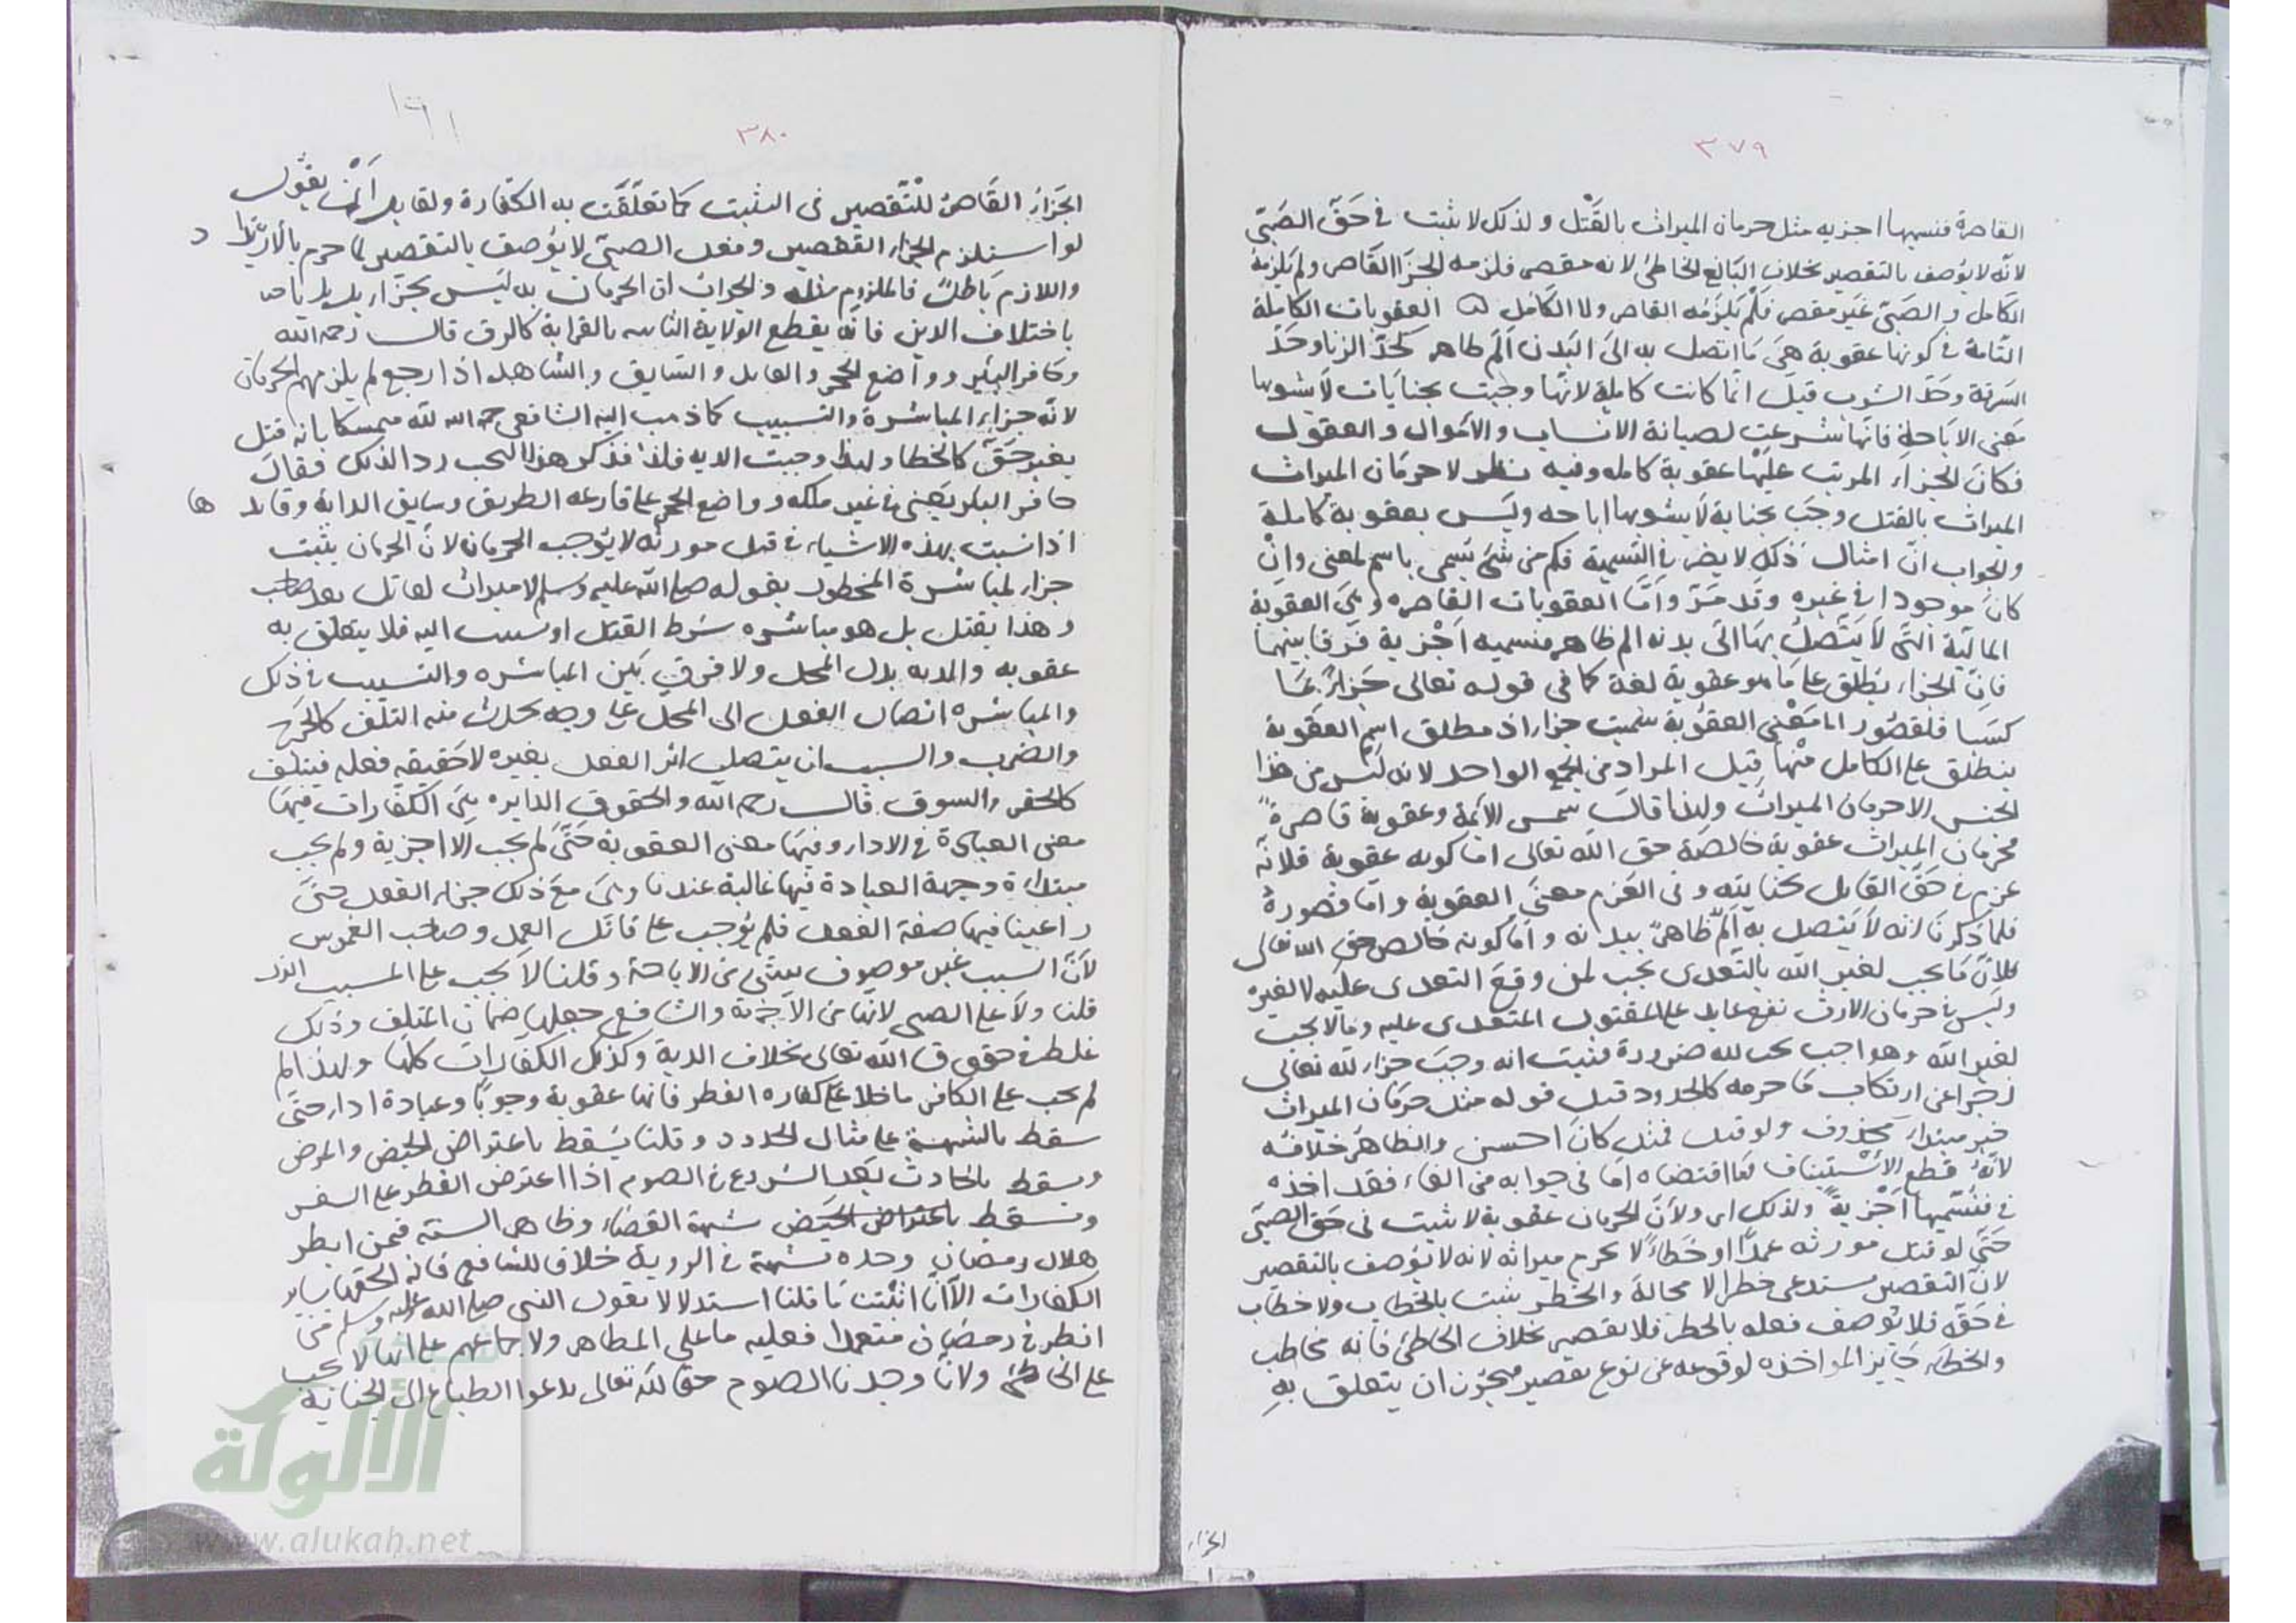 ٣٧٩
القاصرة فنسميها اجزيه مثل حرمان الميراث بالقَتْل ولذلك لا يثبت في حَقّ الصَبّي
لانّه لا يؤصف بالتقصير بخلاف البَالغ الخاطئ لانه مقصر فلزمه الجزَاا القَاصر ولم يَلزمهُ
الكَامل والصَبّي غير مقصر فلَمْ يَلزَمْه القاصر ولا الكَامل ۵ العقوبات الكاملة
التّامة في كونها عقوبة هي مَا اتصل به الى البَدن اَلَم ظاهر كَحَدّ الزنا وحَدّ
السَرقة وحَدّ الشرب قيلَ انّما كانت كاملة لانّها وجبت بجنايَات لاَ يشوبها
مَعنى الاباحة فانّها شرعت لصيانة الانساب والاَموال والعقول
فكانَ الجَزاء المرتب عليْها عقوبة كامله وفيه نظر لان حرمَان الميراث
الميراث بالقتل وجَبَ بجناية لاَ يشوبها اباحه وليس بعقوبة كاملة
والجواب انّ امثال ذلك لا يضر في التسمية فكم من شئ يَسمى باسم لمعنى وانْ
كانَ موجودا في غيره وقد مَرّ وأمّا العقوبات القاصره وهيَ العقوبة
الماليّة التّي لاَ يَتّصلُ بهَا الى بدنه الم ظاهر فنسميه اَجْزية فَرقا بينهما
فانّ الجزاء يُطلق على مَا هو عقوبة لغة كما في قوله تعالى جَزاءً بمَا
كسَبا فلقصُور المَعْنى العقوُبة سُميت جزاء اذ مطلق اسم العقوبة
ينطلق على الكامل مْنها قِيل المراد من الجمع الواحد لانه لَيْس من هذا
الجنس الا حرمان الميراث ولهذا قالَ شمس الائمة وعقوبة قاصرةً
فحرمان الميراث عقوبة خالصَة حق الله تعالى امّا كونه عقوبة فلانّه
غرم في حَقّ القاتل بجنايته وفى الغَرم معنَى العقوبة وامّا قصورهُ
فلمَا ذَكرنَا انه لاَ يَتّصل به اَلَمٌ ظاهرٌ ببدنه وامّا كونه خَالص حق الله تعالى
فلانّ مَا يجب لغير الله بالتَعدى يجب لمن وقعَ التعدى عليه لا لغيره
وليسَ في حرمان الارث نفع عايد على المقتول المتعدى عليه وما لا يجب
لغير الله وهو واجب يجب لله ضرورة فثبت انه وجبَ جزاء لله تعالى
زجرا عن ارتكاب مَا حرمه كالحدود قيل قوله مثل حرمَان الميراث
خبر مبتداء مَحْذوف ولو قيل فمثل كانَ احسن والظاهرُ خلافُه
لانّهُ قطع الاسْتيناف لمَا اقتضاه امّا فى جوابه من الفاء فقد اخذه
في فنُسَمّيها اَجْزيةً ولذلك اى ولانّ الحرمان عقوبة لا يثبت فى حَق الصَبيّ
حَتّى لو قتل مورثه عمدًا او خَطاءً لا يحرم ميراثه لانه لا يؤصف بالتقصير
لانّ التقصير يستدعى خطرا لا محالة والخطر يثبت بالخطاب ولا خطاب
في حَقّه فلا يُوصف فعله بالخطر فلا تقصير بخلاف الخاطئ فانه مخاطب
والخطاء جَايز المواخذه لوقوعه عن نوع تقصير فيجُوز ان يتعلق بهِ
الجزاء
١٩١
٣٨٠
الجَزاءُ القَاصرُ للتّقصير فى التثبت كما تعلَّقَت به الكفارة ولقايل اَنْ يقوُل
لو استلزم الجزاء التقصير وفعل الصبيّ لا يؤصف بالتقصير لما حرم بالارتداد
واللازم بَاطلٌ فالملزوم مثله والجوابُ ان الحرمان به ليَس بجزاء بل
باختلاف الدين فانّه يقطع الولاية الثابته بالقرابة كالرق قالـــ رحمه الله
وحَافر البئر وواضع الحجر والقايد والسّايق والشاهد اذا رجع لم يلزمهم الحرمَان
لانّه جزاء المباشرة والتسبيب كما ذهب اليه الشافعي رحمه الله متمسكا بانه قتل
بغير حَقّ كالخطاء ولهذا وجبت الديه فلذا ذكر هذا البحث ردا لذلك فقالَ
حافر البئر يَعنى في غير ملكه وواضع الحجر على قارعه الطريق وسايق الدابة وقايدها
اذا تسبب بهذه الاشياء في قتل مورثه لا يُوجب الحرمان لانّ الحرمان يثبت
جزاء لمباشرة المحظور بقوله صلى الله عليه وسلم لا ميراث لقاتل بعد صاحب
وهذا بقتل بل هو مباشره شرط القتل او تسبب اليه فلا يتعلق به
عقوبه والديه بدل المحل ولا فرق بَين المباشره والتسبيب في ذلك
والمباشره اتصال الفعل الى المحل على وجه يحدث منه التلف كالجَرح
والضرب والتسبب ان يتصل اثر الفعل بغيره لا حَقيقه فعله فيتلف
كالحفر والسوق قالـــ رحمه الله والحقوق الدايره هيَ الكَفارات فيهَا
معنى العبادة في الاداء وفيهَا معنى العقوبة حَتّى لم يجب الا اجزية ولم يجب
مبتداة وجهة العبادة فيها غالبة عندنا وهيَ معَ ذلك جزاء الفعل حتّى
راعينا فيها صفة الفعل فلم يُوجب على قاتل العمد وصاحب الغموس
لاَنّ السبب غير موصوف بشئ من الاباحة وقلنا لاَ يجب على المسبب الذى
قلنا ولاَ على الصبي لانّها من الاَجْزية والشافعي جعلها ضمان المتلف وذلك
غلط في حقوق الله تعالى بخلاف الدية وكذلك الكفارات كلها ولهذا لم
لم يجب على الكافر ما خلا عَلى كفاره الفطر فانها عقوبة وجوبًا وعبادة اداء حتّى
سقط بالشبهة على مثال الحدود وقلنا يَسْقط باعتراض الحيض والمرض
ويسقط بالحادث بَعد الشروع في الصوم اذا اعترض الفطر على السفر
ويسقط باعتراض الحَيَض شبهة القضاء وظاهر السنة فيمن ابصر
هلال رمضان وحده شبهة في الروية خلافا للشافعي فانه الحقها بساير
الكفارات الاّ انّا اثبَتنا مَا قلنا استدلالا بقول النبي صلى الله عليه وسلم مَنْ
افطر في رمضان متعمدا فعليه ما على المظاهر ولاجماعهم على انها لاَ يجب
على الخاطئ ولانّا وجدنا الصوم حقّا لله تعالى يدعوا الطباع الى الجناية
الألوكة
www.alukah.net